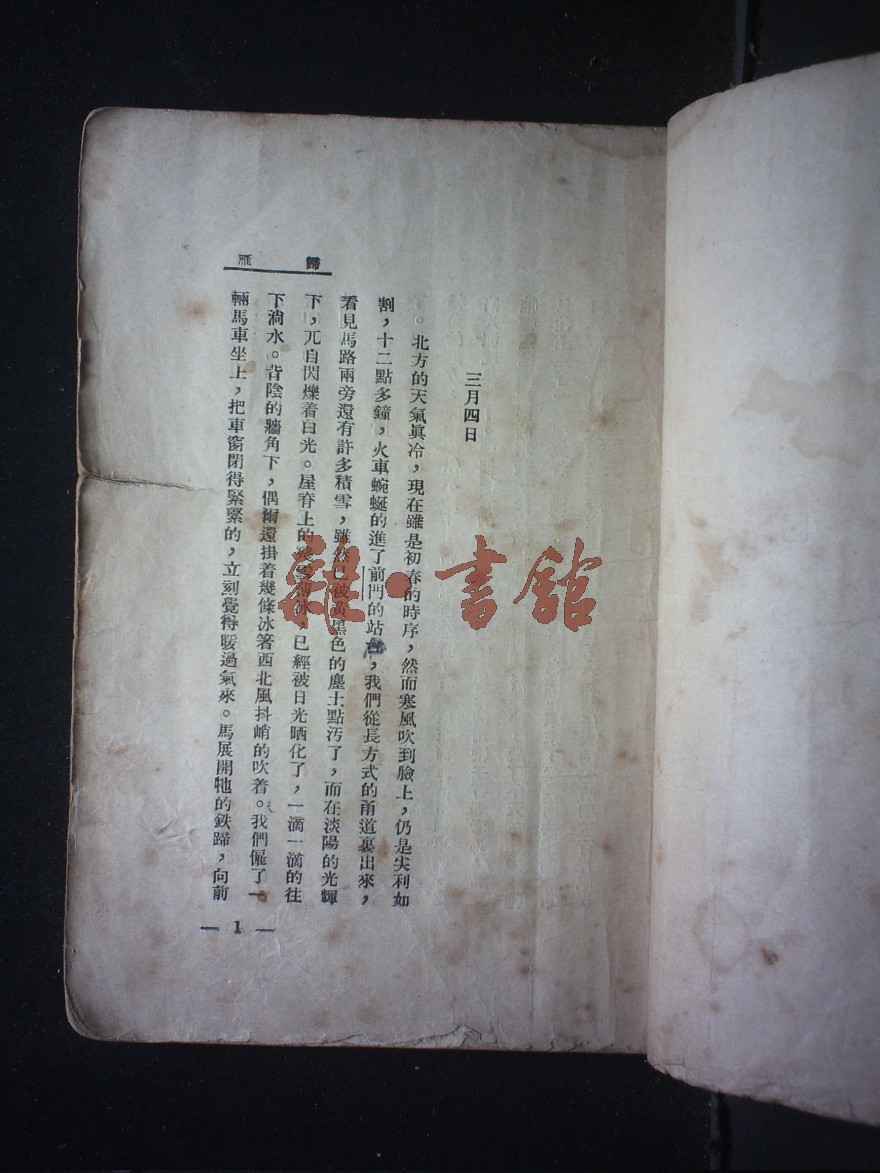 歸雁
三月四日
北方的天氣眞冷，現在雖是初春的時序，然而寒風吹到臉上，仍是尖利如
割，十二點多鐘，火車蜿蜒的進了前門的站台，我們從長方式的甬道裏出來，
看見馬路兩旁還有許多積雪，雖然已被黃黑色的塵土點汚了，而在淡陽的光輝
下，兀自閃爍着白光。屋脊上的殘雪薄冰，已經被日光晒化了，一滴一滴的往
下淌水。背陰的牆角下，偶爾還掛着幾條冰箸西北風抖峭的吹着。我們僱了一
輛馬車坐上，把車窗閉得緊緊的，立刻覺得暖過氣來。馬展開牠的鉄蹄，向前
— 1 —
雜·書館